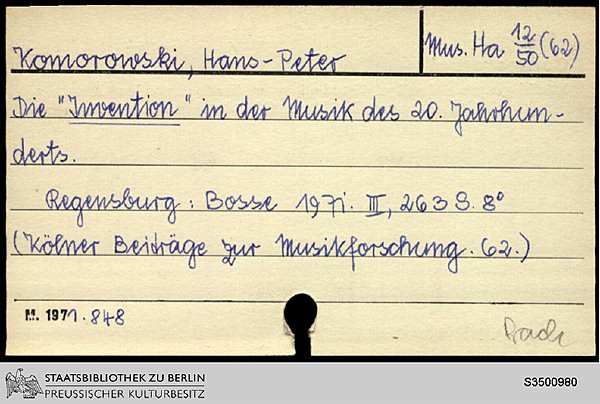 Komorowski, Hans-Peter
Mus. Ha 12/50 (62)
Die "Invention" in der Musik des 20. Jahrhun-
derts.
Regensburg: Bosse 1971. III, 263 S. 8°
(Kölner Beiträge zur Musikforschung. 62.)
M. 1971. 848
Bach
STAATSBIBLIOTHEK ZU BERLIN
PREUSSISCHER KULTURBESITZ
S3500980